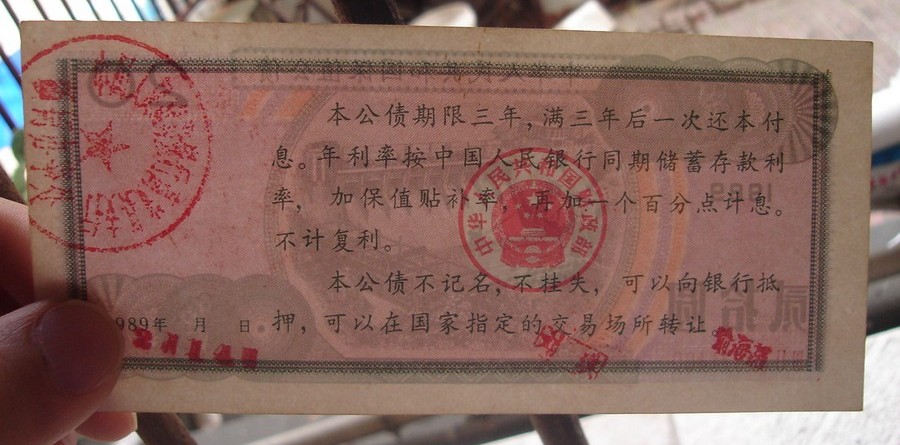 本公债期限三年，满三年后一次还本付
息。年利率按中国人民银行同期储蓄存款利
率，加保值贴补率，再加一个百分点计息。
不计复利。
本公债不记名，不挂失，可以向银行抵
押，可以在国家指定的交易场所转让
989年 月 日
中华人民共和国财政部
贰拾圆
1989